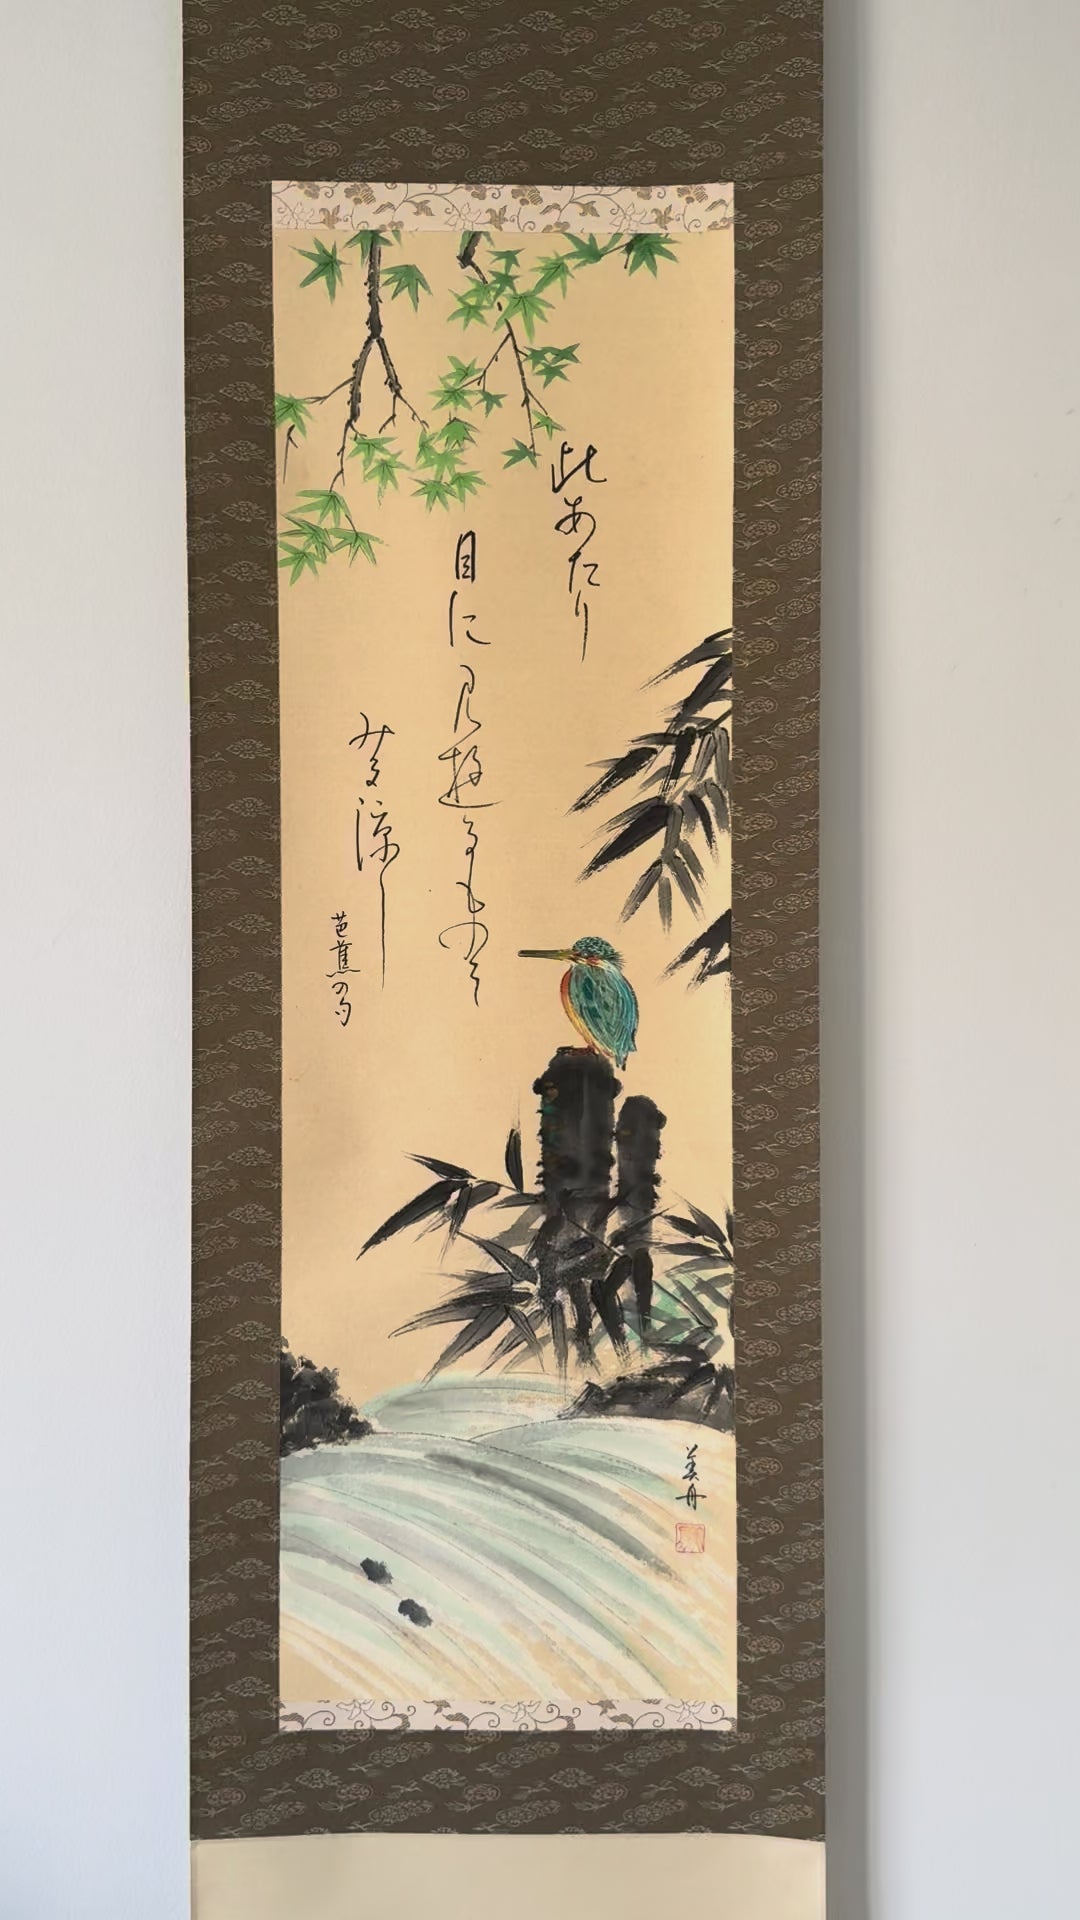 此あたり
目に見遊るものは
みな涼し
芭蕉の句
美舟